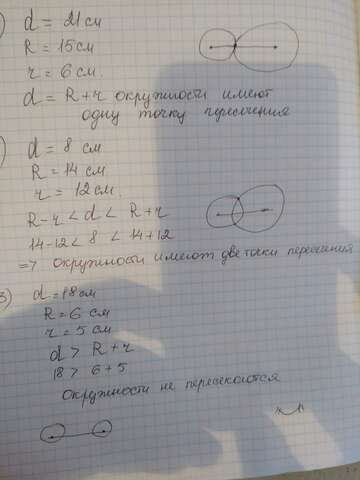 )
d = 21 см
R = 15 см
r = 6 см.
d = R+r окружности имеют
одну точку пересечения
)
d = 8 см
R = 14 см
r = 12 см.
R-r < d < R+r
14-12 < 8 < 14+12
=> окружности имеют две точки пересечения
3)
d = 18 см
R = 6 см
r = 5 см
d > R+r
18 > 6+5
Окружности не пересекаются